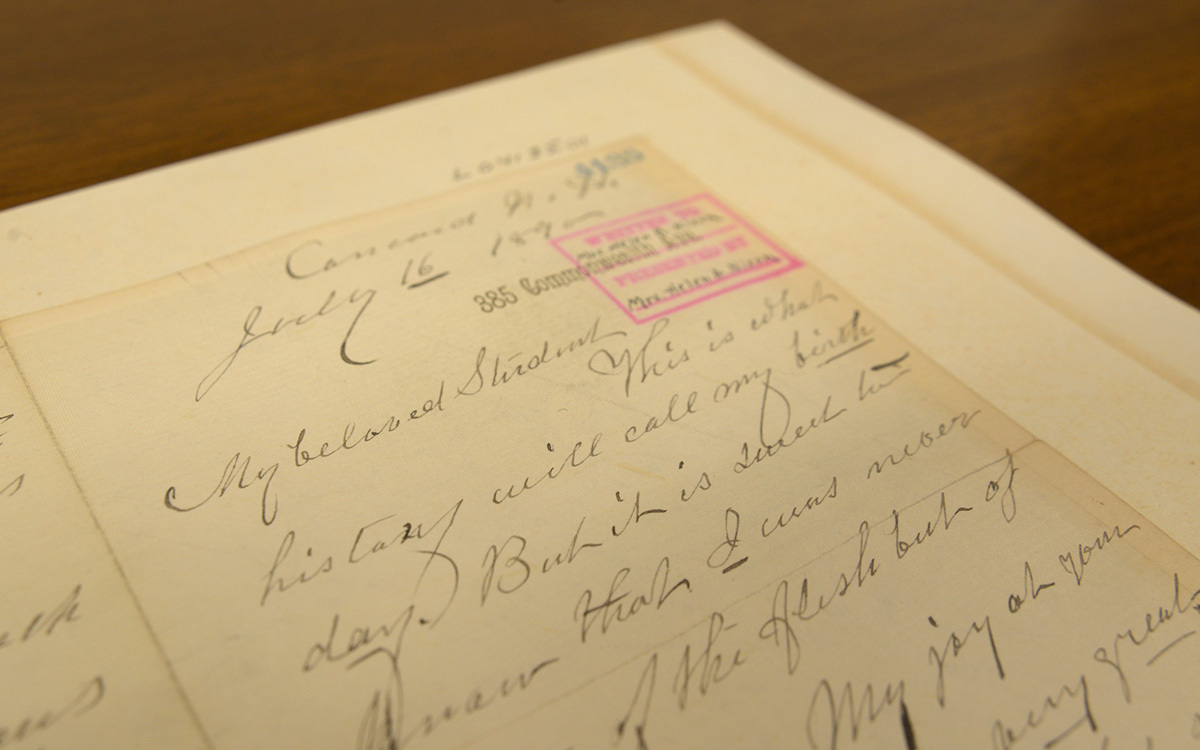 Concord N. H.
July 16 189
385 Commonwealth Ave.
WRITTEN TO
PRESENTED BY
Mrs. Helen A. Nixon
My beloved Student
This is what
history will call my birth
day. But it is sweet to
know that I was never
of the flesh but of
My joy at your
very great